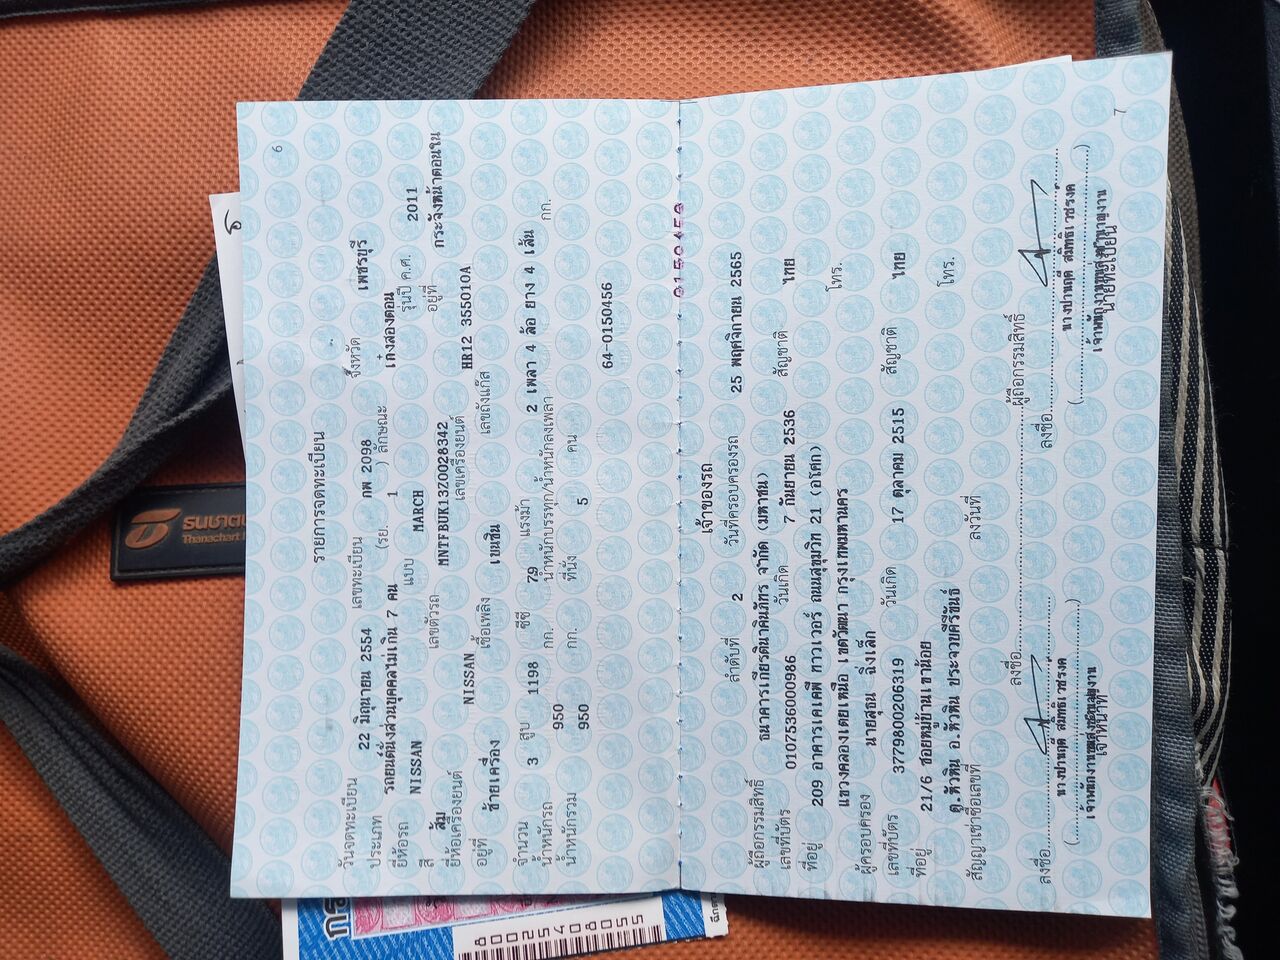 6
รายการจดทะเบียน
วันจดทะเบียน 22 มิถุนายน 2554 เลขทะเบียน กพ 2098 จังหวัด เพชรบุรี
ประเภท รถยนต์นั่งส่วนบุคคลไม่เกิน 7 คน (รย. 1 ) ลักษณะ เก๋งสองตอน
ยี่ห้อรถ NISSAN แบบ MARCH รุ่นปี ค.ศ. 2011
สี ส้ม เลขตัวรถ MNTFBUK13Z0028342 อยู่ที่ กระจังหน้าตอนใน
ยี่ห้อเครื่องยนต์ NISSAN เลขเครื่องยนต์ HR12 355010A
อยู่ที่ ซ้ายเครื่อง เชื้อเพลิง เบนซิน เลขถังแก๊ส
จำนวน 3 สูบ 1198 ซีซี 79 แรงม้า 2 เพลา 4 ล้อ ยาง 4 เส้น
น้ำหนักรถ 950 กก. น้ำหนักบรรทุก/น้ำหนักลงเพลา กก.
น้ำหนักรวม 950 กก. ที่นั่ง 5 คน
64-0150456
เจ้าของรถ
ลำดับที่ 2 วันที่ครอบครองรถ 25 พฤศจิกายน 2565
ผู้ถือกรรมสิทธิ์ ธนาคารเกียรตินาคินภัทร จำกัด (มหาชน)
เลขที่บัตร 0107536000986 วันเกิด 7 กันยายน 2536 สัญชาติ ไทย
ที่อยู่ 209 อาคารเคเคพี ทาวเวอร์ ถนนสุขุมวิท 21 (อโศก)
แขวงคลองเตยเหนือ เขตวัฒนา กรุงเทพมหานคร โทร.
ผู้ครอบครอง นายสุธน ฉิ่งเล็ก
เลขที่บัตร 3779800206319 วันเกิด 17 ตุลาคม 2515 สัญชาติ ไทย
ที่อยู่ 21/6 ซอยหมู่บ้านเขาน้อย
ต.หัวหิน อ.หัวหิน ประจวบคีรีขันธ์ โทร.
สัญญาเช่าซื้อเลขที่ ลงวันที่
ลงชื่อ ผู้ถือกรรมสิทธิ์
ลงชื่อ ลงชื่อ
เจ้าหน้าที่ นายทะเบียน
7
ธนชาต
Thanachart
80025408055